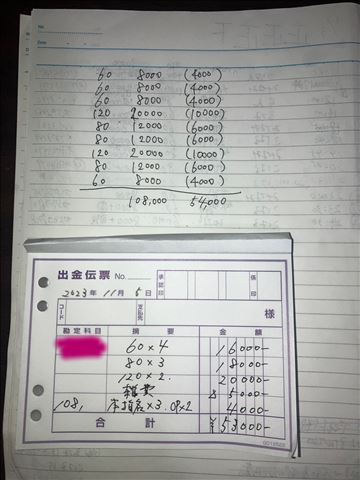 No.
Date
60 8000 (4000)
60 8000 (4000)
60 8000 (4000)
120 20000 (10000)
80 12000 (6000)
80 12000 (6000)
120 20000 (10000)
80 12000 (6000)
60 8000 (4000)
108,000 54,000
出金伝票 No. 承認印 係印
2023年 11月 5日
コード 支払先 様
勘定科目 摘要 金額
60×4 16000-
80×3 18000-
120×2. 20000-
雑費 5000-
108, 本指名×3. OP×2 4000-
合計 ¥53000-